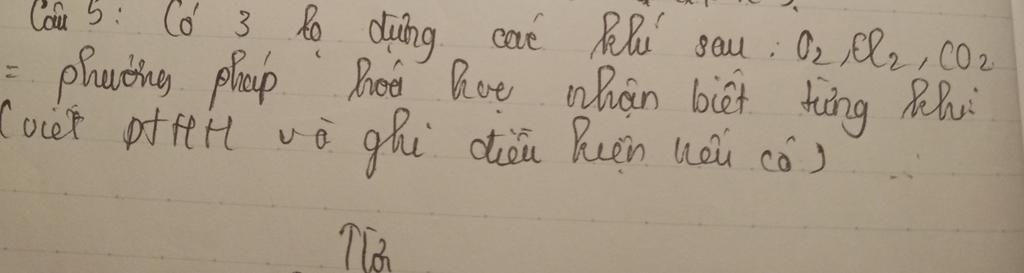 Câu 5: Có 3 lọ đựng các khí sau: O2, Cl2, CO2
= phương pháp hoá học nhận biết từng khí
(viết PTHH và ghi điều kiện nếu có)